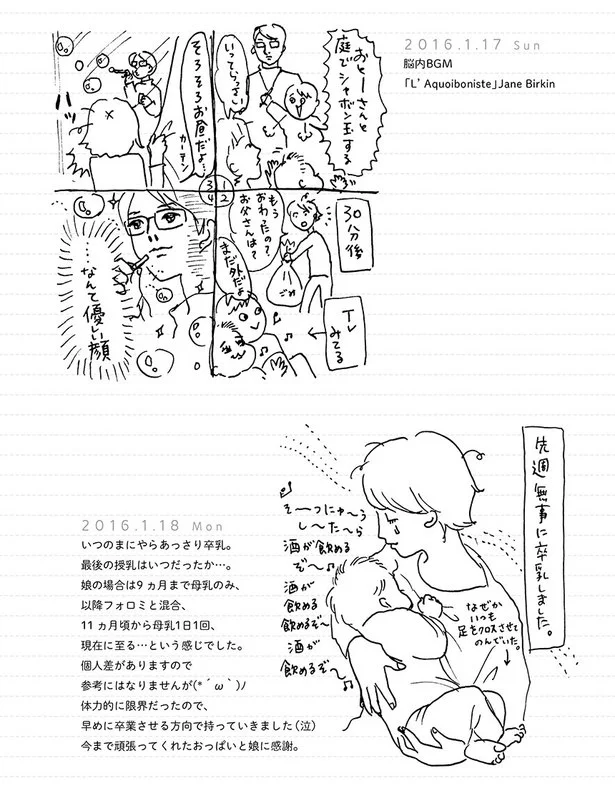 2016.1.17 Sun
脳内BGM
「L' Aquoiboniste」Jane Birkin
おとーさんと
庭でシャボン玉する
いってらっさい
1
2
3
4
30分後
もう
おわったの?
お父さんは?
ごみ
まだ外だよ
TV
みてる
そろそろお昼だよ…
カーテン
ハッ
…なんて優しい顔
先週無事に卒乳しました。
そ〜つにゅ〜う
し〜た〜ら
酒が飲める
ぞ〜
酒が
飲める
飲めるぞ〜
酒が
飲めるぞ〜
なぜか
いつも
足をクロスさせて
のんでいた。
2016.1.18 Mon
いつのまにやらあっさり卒乳。
最後の授乳はいつだったか…。
娘の場合は9ヵ月まで母乳のみ、
以降フォロミと混合、
11ヵ月頃から母乳1日1回、
現在に至る…という感じでした。
個人差がありますので
参考にはなりませんが(*´ω`)ノ
体力的に限界だったので、
早めに卒業させる方向で持っていきました(泣)
今まで頑張ってくれたおっぱいと娘に感謝。